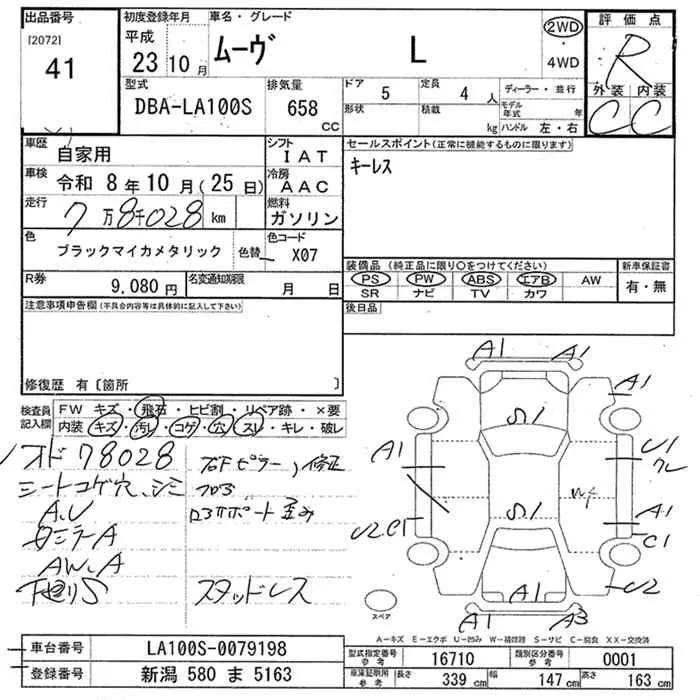 出品番号
[2072]
41
初度登録年月
平成
23 10 月
車名・グレード
ムーヴ L
2WD
4WD
評価点
R
外装 内装
C C
型式
DBA-LA100S
排気量
658 CC
ドア 5
定員 4 人
形状
積載 kg
ディーラー・並行
モデル年式 年
ハンドル 左・右
車歴
自家用
シフト
IAT
車検
令和 8年 10月(25日)
冷房
AAC
走行
7万8千028 km
燃料
ガソリン
色
ブラックマイカメタリック
色替
色コード
X07
R券
9,080円
名変通知期限
月 日
セールスポイント(正常に機能するものに限ります)
キーレス
装備品(純正品に限り○をつけてください)
PS PW ABS エアB AW
SR ナビ TV カワ
新車保証書
有・無
後日品
注意事項申告欄(不具合内容等は具体的に記入して下さい)
修復歴 有〔箇所 〕
検査員記入欄
FW キズ・飛石・ヒビ割・リペア跡・×要
内装 キズ・汚レ・コゲ・穴・スレ・キレ・破レ
メオド 78028
シートコゲ穴、シミ
A.U
AW.A
下廻りS
右Fピラー、修正
スタッドレス
A1 A1
A1
S1
A1
U1
S1
A1
U2 C1
C1
U2
A1
A1 A3
スペア
A-キズ E-エクボ U-凹み W-補修跡 S-サビ C-腐食 XX-交換済
車台番号
LA100S-0079198
登録番号
新潟 580 ま 5163
型式指定番号 参考
16710
類別区分番号 参考
0001
車庫証明用 参考
長さ 339 cm
幅 147 cm
高さ 163 cm